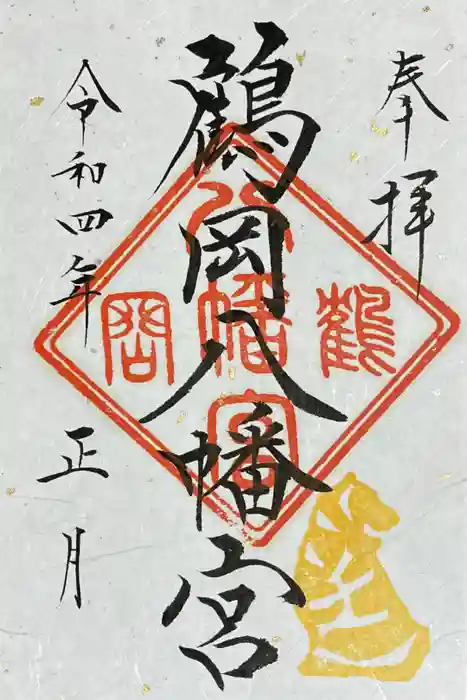 奉拝
鶴岡八幡宮
令和四年 正月
鶴 八幡宮 岡